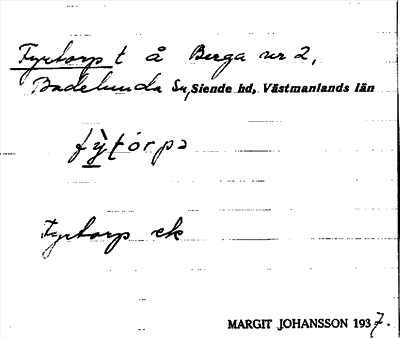 Fyrtorp t å Berga nr 2,
Badelunda sn, Siende hd, Västmanlands län
fỳt́órpa
Fyrtorp ek
MARGIT JOHANSSON 1937.